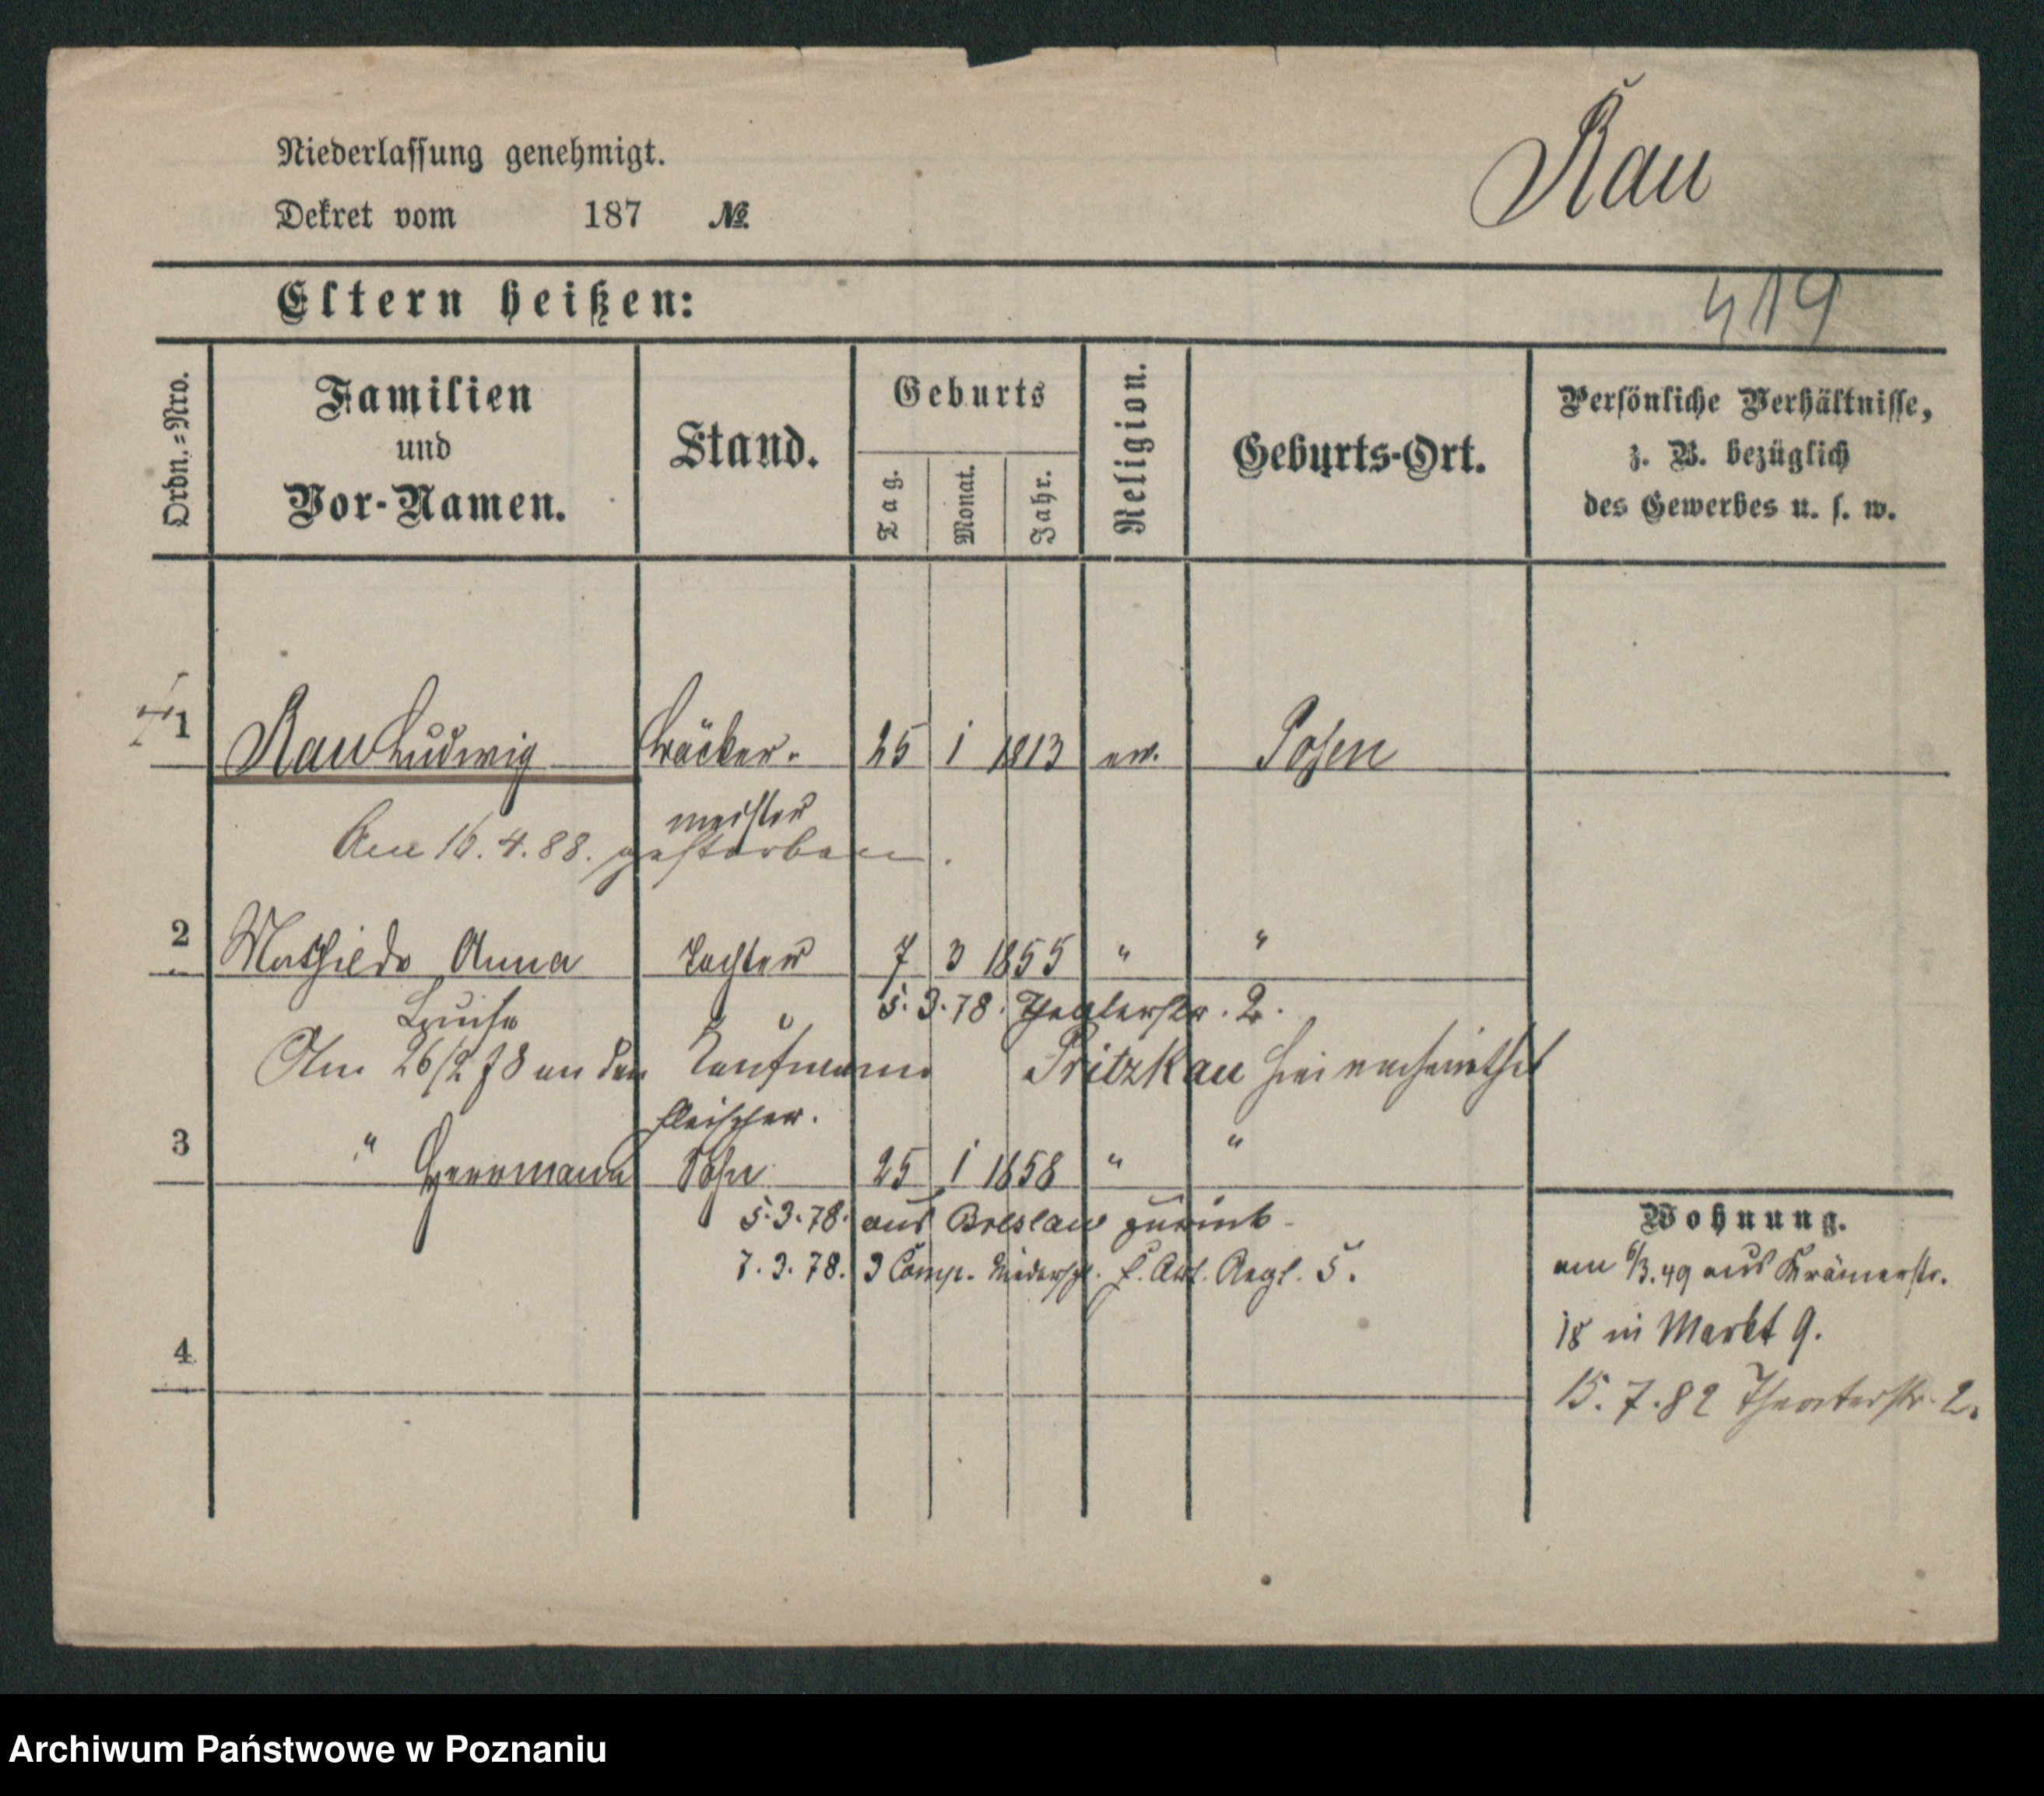 Rau
Niederlassung genehmigt.
Dekret vom 187 №
Eltern heißen:
419
Ordn.=Nro.
Familien
und
Vor-Namen.
Stand.
Geburts
Tag.
Monat.
Jahr.
Religion.
Geburts-Ort.
Persönliche Verhältnisse,
z. B. bezüglich
des Gewerbes u. s. w.
1 Rau Ludwig Bäcker- 25 1 1813 ev. Posen
meister
Am 16.4.88. gestorben.
2 Mathilde Anna Tochter 7 3 1855 " "
Louise
5.3.78. Theaterstr. 2.
Am 26/2 78 an den Kaufmann Pritzkau hier verheirathet
Fleischer.
3 " Herrmann Sohn 25 1 1858 " "
5.3.78. aus Breslau zurück
7.3.78. 3 Comp. Niederschl. F. Art. Regt. 5.
4
Wohnung.
am 6/3.79 aus Krämerstr.
18 in Markt 9.
15.7.82 Theaterstr. 2.
Archiwum Państwowe w Poznaniu